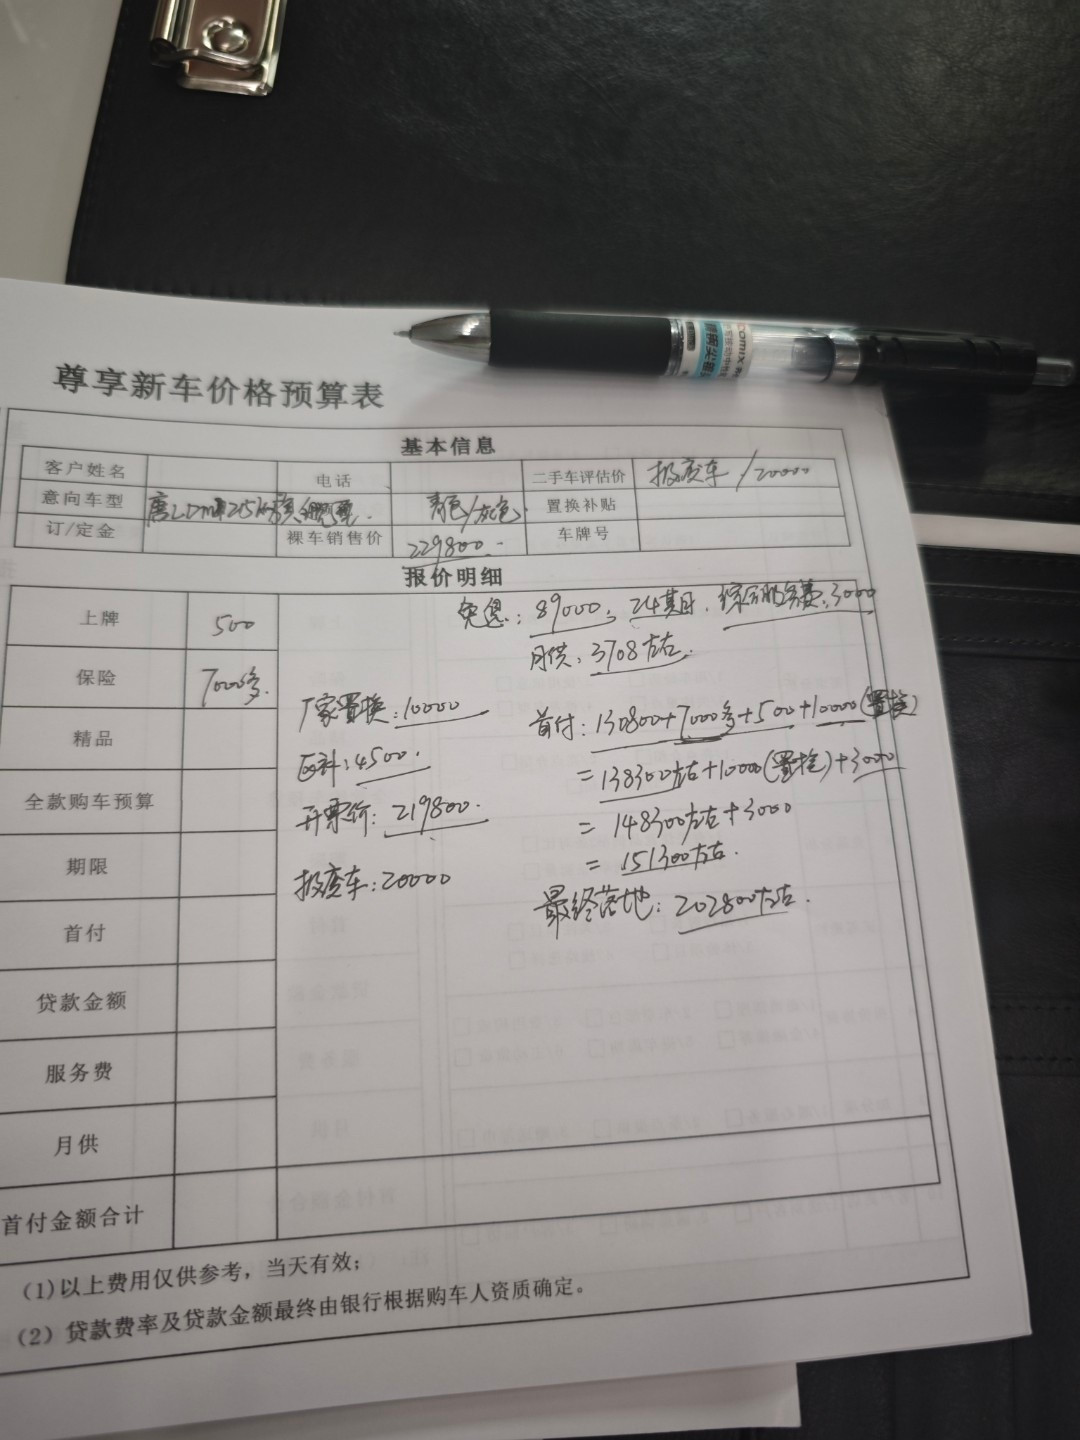 尊享新车价格预算表
基本信息
客户姓名 电话 二手车评估价 报废车/20000
意向车型 唐 青色/灰色 置换补贴
订/定金 裸车销售价 229800 车牌号
报价明细
上牌 500
免息:89000, 24期, 3000
保险 7000多.
月供:3708左右.
精品
厂家置换:10000
首付:130800+7000多+500+10000(置换)
4500.
=138300左右+10000(置换)+3000
全款购车预算
开票价:219800.
=148300左右+3000
期限
=151300左右.
报废车:20000
最终落地:202800左右.
首付
贷款金额
服务费
月供
首付金额合计
(1)以上费用仅供参考，当天有效；
(2)贷款费率及贷款金额最终由银行根据购车人资质确定。
comix